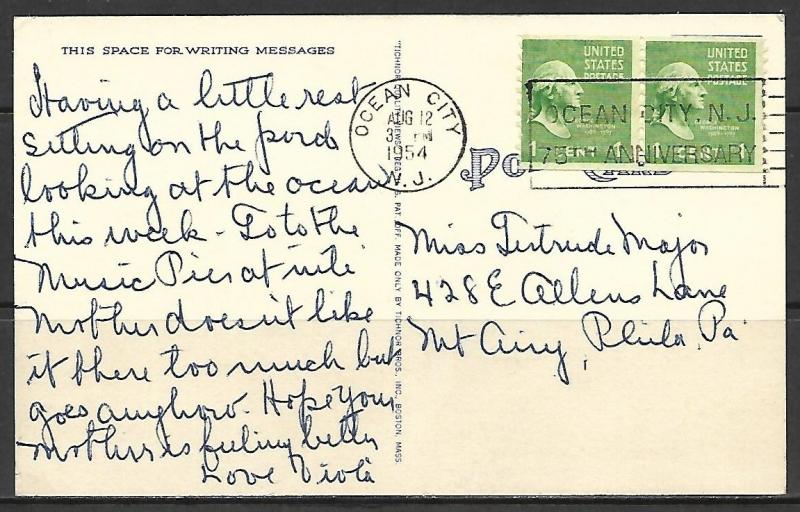 THIS SPACE FOR WRITING MESSAGES
Having a little rest
Sitting on the porch
looking at the ocean
this week - Go to the
Music Pier at nite
Mother doesn't like
it there too much but
goes anyhow. Hope your
Mother is feeling better
Love Viola
"TICHNOR QUALITY VIEWS," REG. U. S. PAT. OFF. MADE ONLY BY TICHNOR BROS., INC., BOSTON, MASS.
OCEAN CITY
AUG 12
3 PM
1954
N.J.
UNITED
STATES
POSTAGE
WASHINGTON
1 CENT 1
UNITED
STATES
POSTAGE
WASHINGTON
1 CENT 1
OCEAN CITY, N.J.
75TH ANNIVERSARY
Miss Gertrude Major
428 E Allens Lane
Mt Airy, Phila, Pa